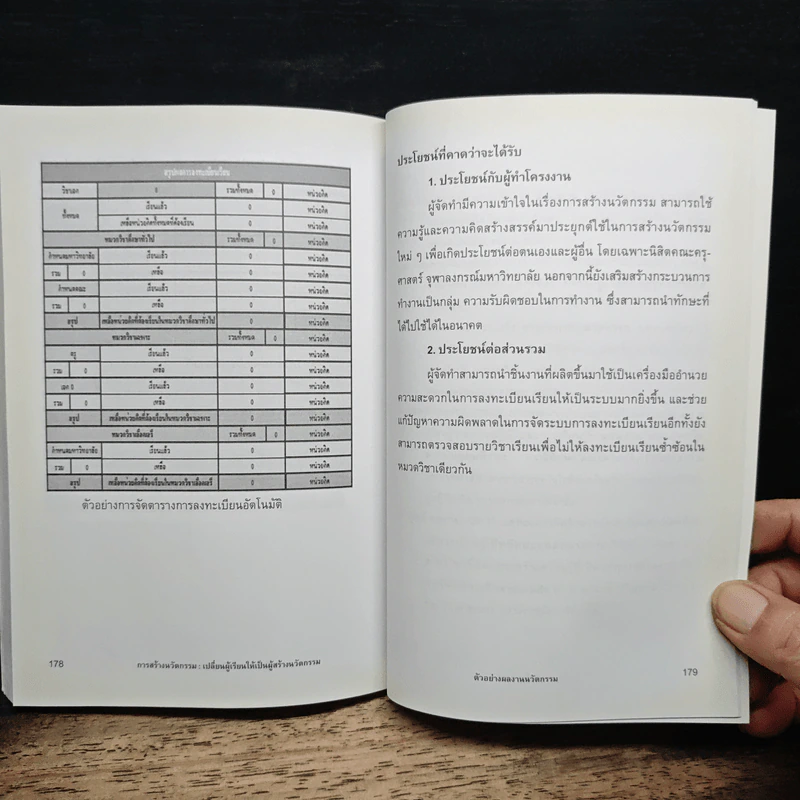 สรุปผลการลงทะเบียนเรียน
วิชาเอก 0 รวมทั้งหมด 0 หน่วยกิต
ทั้งหมด เรียนแล้ว 0 หน่วยกิต
เหลือหน่วยกิตทั้งหมดที่ต้องเรียน 0 หน่วยกิต
หมวดวิชาศึกษาทั่วไป รวมทั้งหมด 0 หน่วยกิต
กำหนดมหาวิทยาลัย เรียนแล้ว 0 หน่วยกิต
รวม 0 เหลือ 0 หน่วยกิต
กำหนดคณะ เรียนแล้ว 0 หน่วยกิต
รวม 0 เหลือ 0 หน่วยกิต
สรุป เหลือหน่วยกิตที่ต้องเรียนในหมวดวิชาศึกษาทั่วไป 0 หน่วยกิต
หมวดวิชาเฉพาะ รวมทั้งหมด 0 หน่วยกิต
ครู เรียนแล้ว 0 หน่วยกิต
รวม 0 เหลือ 0 หน่วยกิต
เอก 0 เรียนแล้ว 0 หน่วยกิต
รวม 0 เหลือ 0 หน่วยกิต
สรุป เหลือหน่วยกิตที่ต้องเรียนในหมวดวิชาเฉพาะ 0 หน่วยกิต
หมวดวิชาเลือกเสรี รวมทั้งหมด 0 หน่วยกิต
กำหนดมหาวิทยาลัย เรียนแล้ว 0 หน่วยกิต
รวม 0 เหลือ 0 หน่วยกิต
สรุป เหลือหน่วยกิตที่ต้องเรียนในหมวดวิชาเลือกเสรี 0 หน่วยกิต
ตัวอย่างการจัดตารางการลงทะเบียนอัตโนมัติ
178 การสร้างนวัตกรรม : เปลี่ยนผู้เรียนให้เป็นผู้สร้างนวัตกรรม
ประโยชน์ที่คาดว่าจะได้รับ
1. ประโยชน์กับผู้ทำโครงงาน
ผู้จัดทำมีความเข้าใจในเรื่องการสร้างนวัตกรรม สามารถใช้
ความรู้และความคิดสร้างสรรค์มาประยุกต์ใช้ในการสร้างนวัตกรรม
ใหม่ ๆ เพื่อเกิดประโยชน์ต่อตนเองและผู้อื่น โดยเฉพาะนิสิตคณะครุ-
ศาสตร์ จุฬาลงกรณ์มหาวิทยาลัย นอกจากนี้ยังเสริมสร้างกระบวนการ
ทำงานเป็นกลุ่ม ความรับผิดชอบในการทำงาน ซึ่งสามารถนำทักษะที่
ได้ไปใช้ได้ในอนาคต
2. ประโยชน์ต่อส่วนรวม
ผู้จัดทำสามารถนำชิ้นงานที่ผลิตขึ้นมาใช้เป็นเครื่องมืออำนวย
ความสะดวกในการลงทะเบียนเรียนให้เป็นระบบมากยิ่งขึ้น และช่วย
แก้ปัญหาความผิดพลาดในการจัดระบบการลงทะเบียนเรียนอีกทั้งยัง
สามารถตรวจสอบรายวิชาเรียนเพื่อไม่ให้ลงทะเบียนเรียนซ้ำซ้อนใน
หมวดวิชาเดียวกัน
ตัวอย่างผลงานนวัตกรรม 179